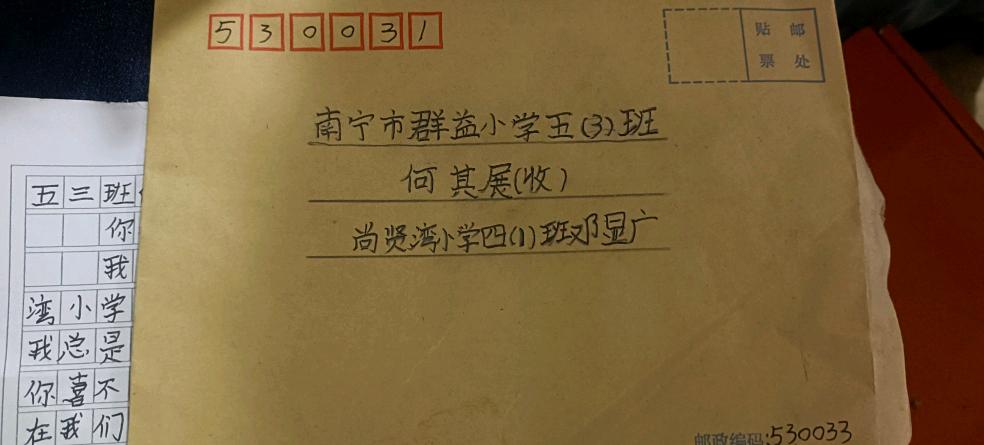 530031
贴 邮
票 处
南宁市群益小学五(3)班
何其展(收)
尚贤湾小学四(1)班邓显广
邮政编码:530033
五三班
你
我
湾小学
我总是
你喜不
在我们